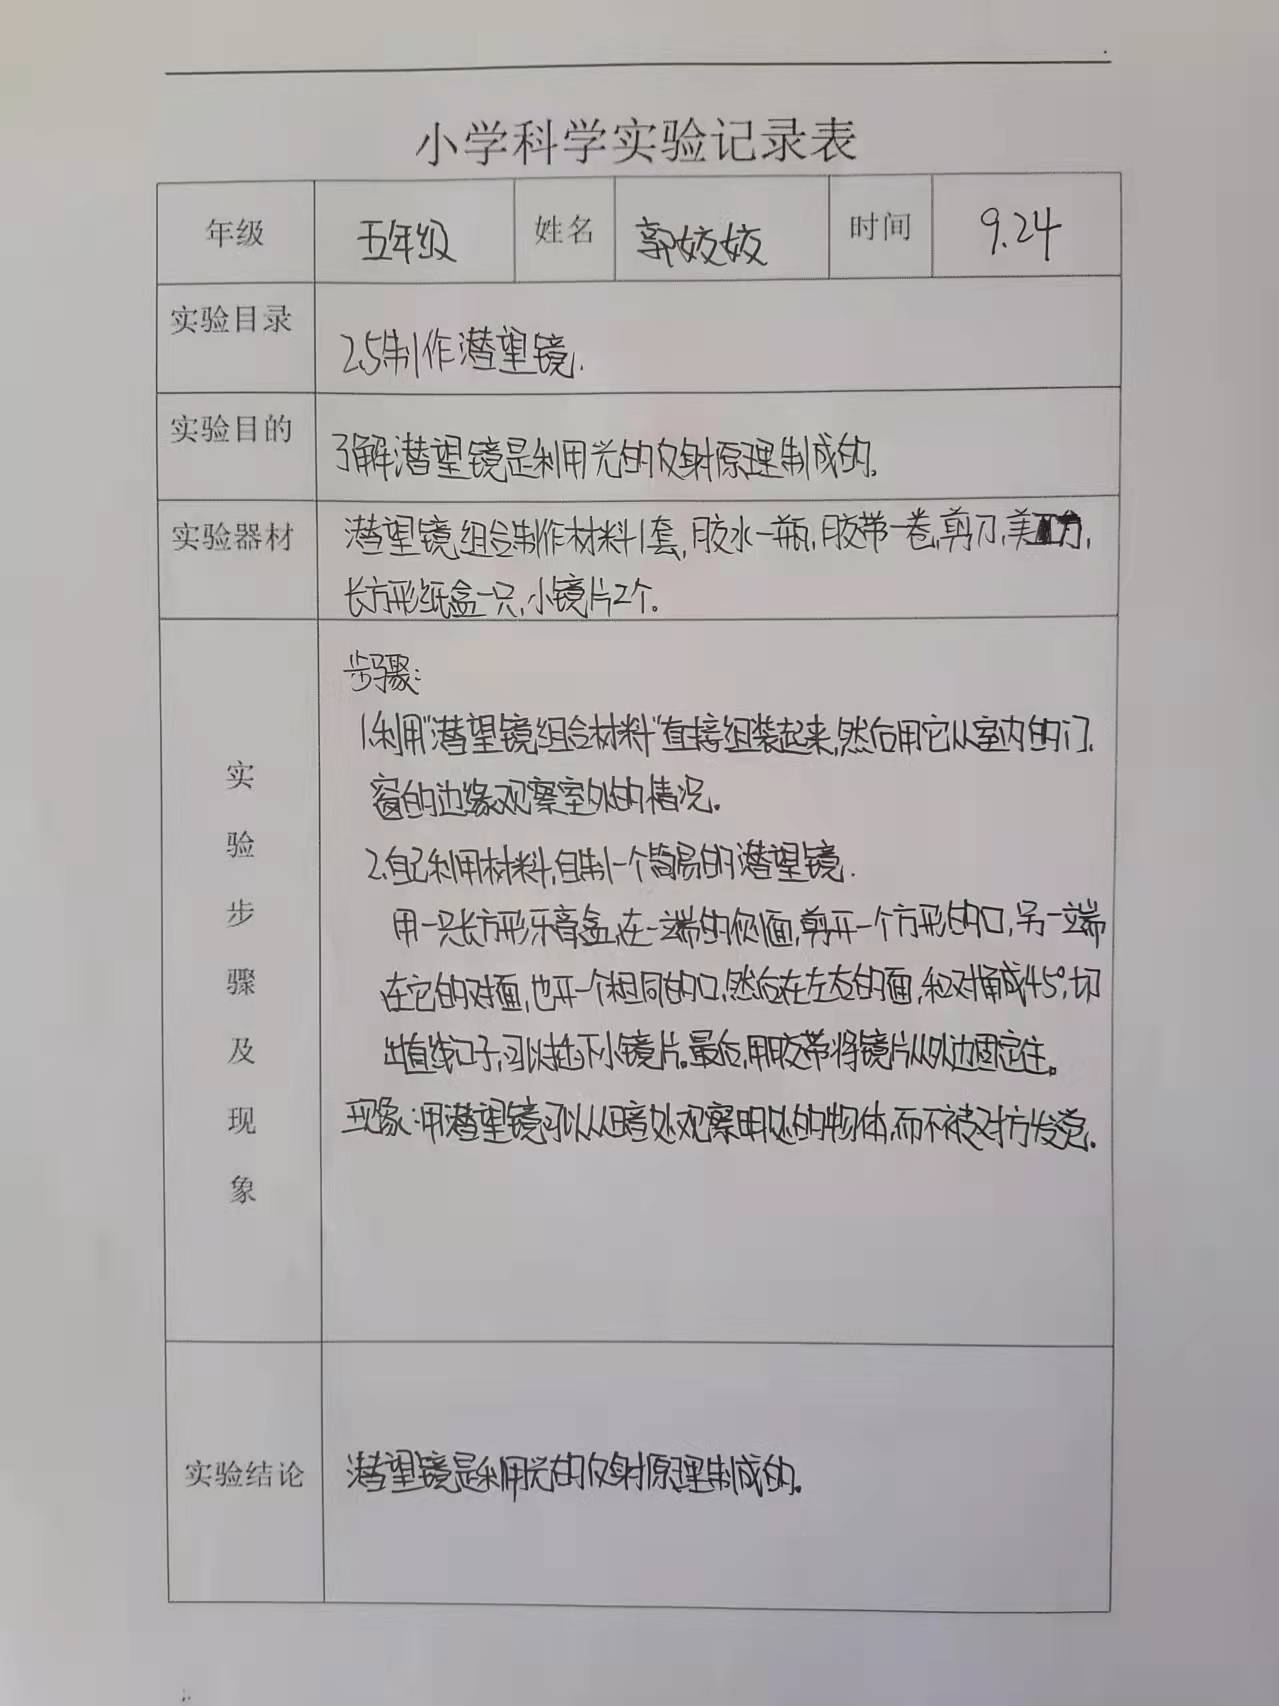 小学科学实验记录表
年级 五年级 姓名 郭姣姣 时间 9.24
实验目录 2.5制作潜望镜.
实验目的 了解潜望镜是利用光的反射原理制成的。
实验器材 潜望镜组合制作材料1套,胶水一瓶,胶带一卷,剪刀,美工刀,
长方形纸盒一只,小镜片2个。
实验步骤及现象
步骤:
1.利用"潜望镜组合材料"直接组装起来,然后用它从室内的门.
窗的边缘观察室外的情况。
2.自己利用材料,自制一个简易的潜望镜.
用一只长方形牙膏盒,在一端的侧面,剪开一个方形的口,另一端
在它的对面,也开一个相同的口,然后在左右的面,和对角成45°,切
出直线口子,可以插下小镜片。最后,用胶带将镜片从外边固定住。
现象:用潜望镜可以从暗处观察明处的物体,而不被对方发觉.
实验结论 潜望镜是利用光的反射原理制成的。